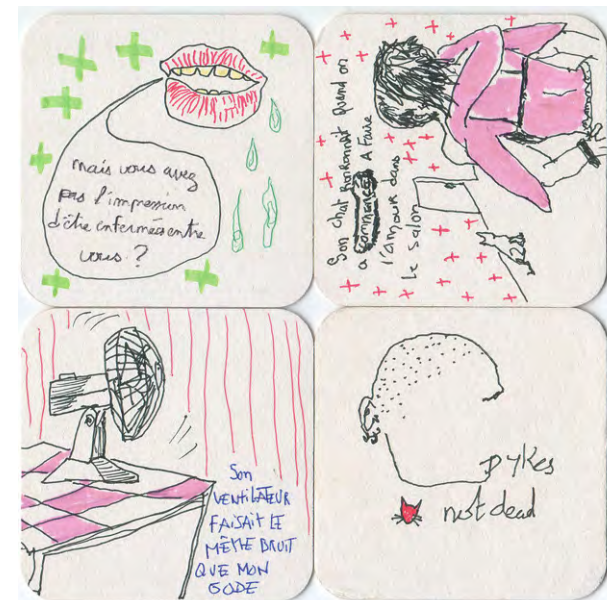 mais vous avez
pas l'impression
d'être enfermées entre
vous ?
Son chat Ronronnait Quand on
a commencé A Faire
l'amour dans
le salon
Son
VENTILATEUR
FAISAIT LE
MÊME BRUIT
QUE MON
GODE
Dykes
not dead